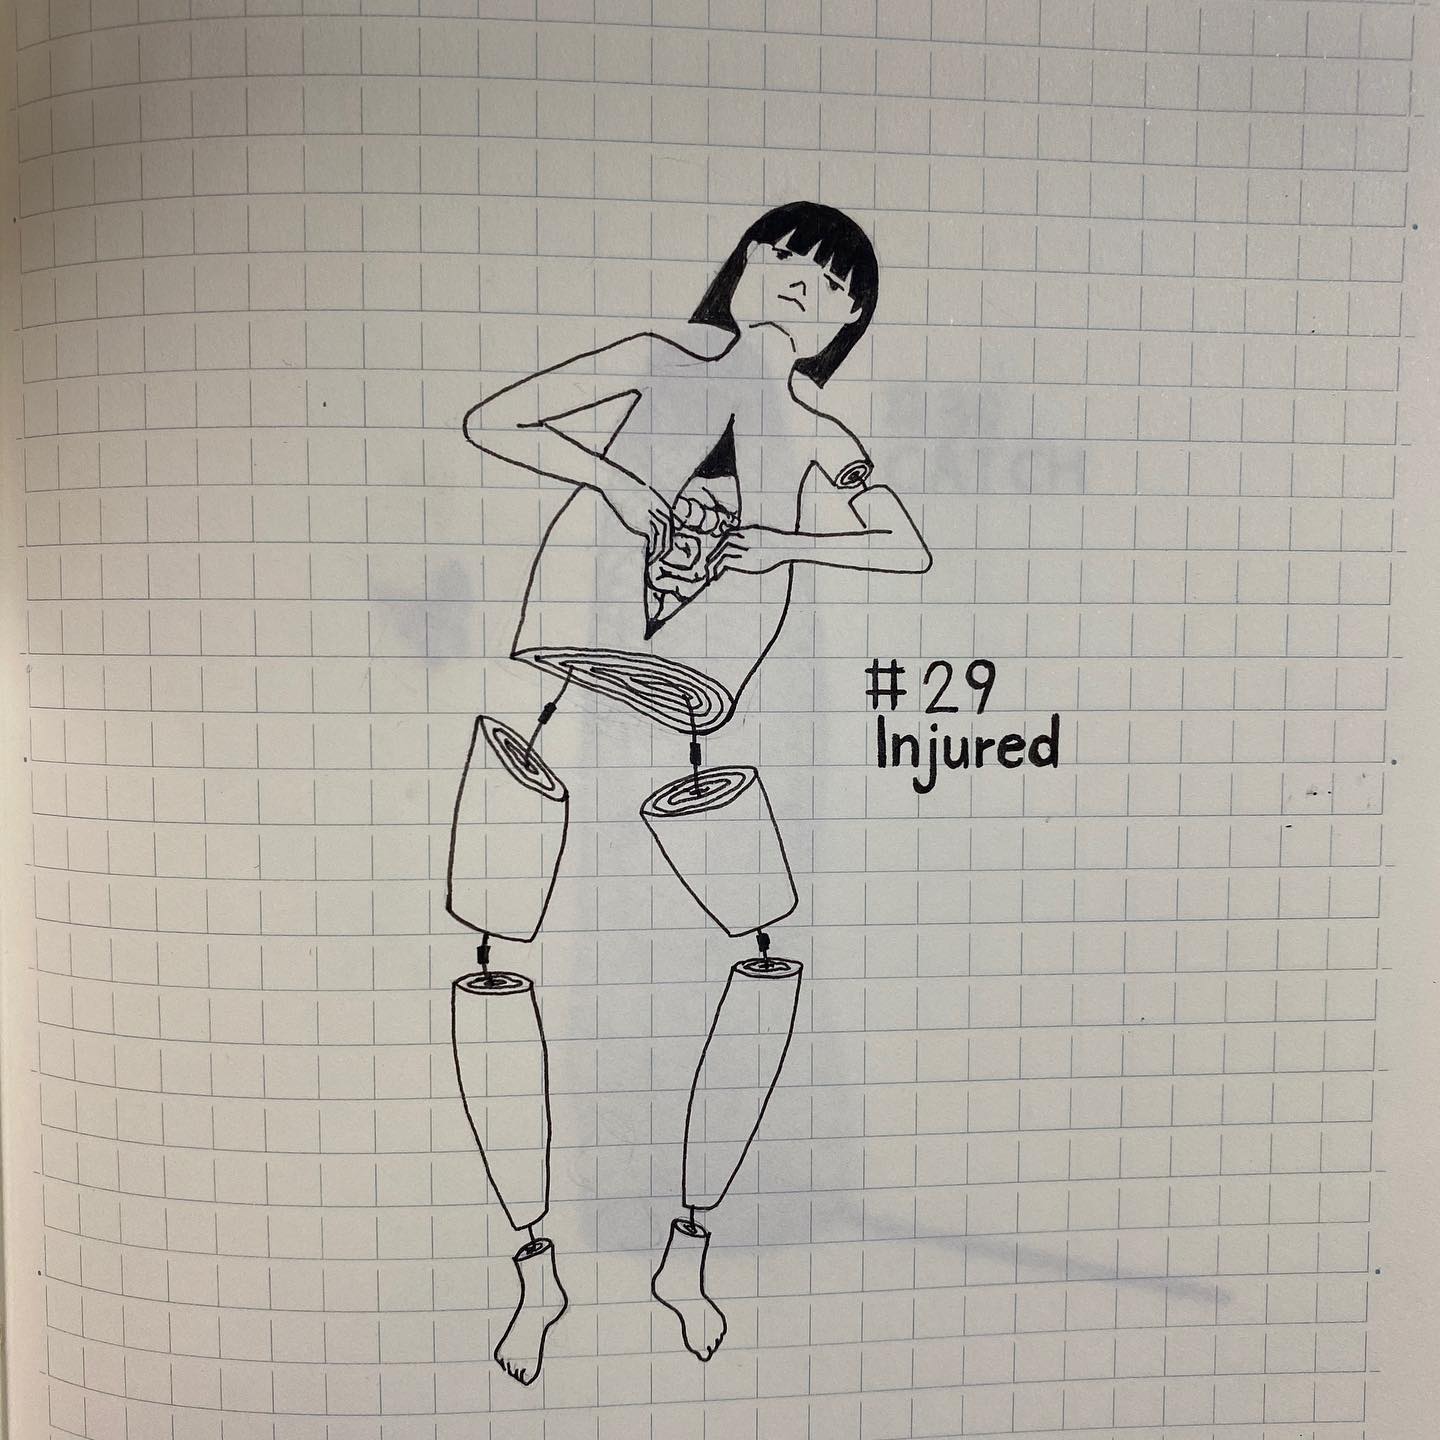 #29
Injured